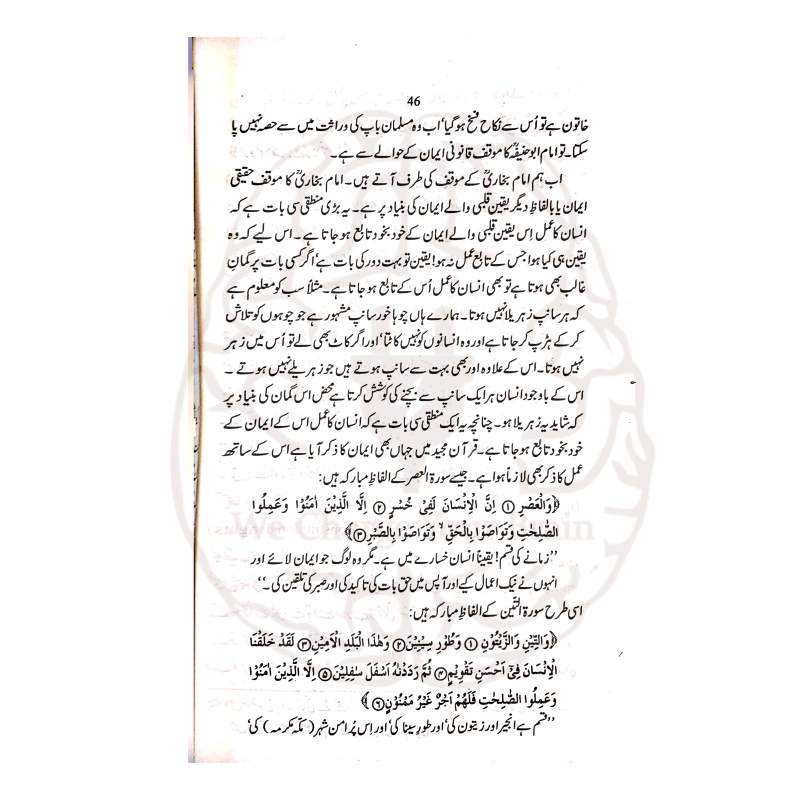 46
خاتون ہے تو اُس سے نکاح فسخ ہو گیا‘ اب وہ مسلمان باپ کی وراثت میں سے حصہ نہیں پا
سکتا۔ تو امام ابوحنیفہؒ کا موقف قانونی ایمان کے حوالے سے ہے۔
اب ہم امام بخاریؒ کے موقف کی طرف آتے ہیں۔ امام بخاریؒ کا موقف حقیقی
ایمان یا بالفاظِ دیگر یقین قلبی والے ایمان کی بنیاد پر ہے۔ یہ بڑی منطقی سی بات ہے کہ
انسان کا عمل اِس یقین قلبی والے ایمان کے خود بخود تابع ہو جاتا ہے۔ اس لیے کہ وہ
یقین ہی کیا ہوا جس کے تابع عمل نہ ہو! یقین تو بہت دور کی بات ہے‘ اگر کسی بات پر گمانِ
غالب بھی ہوتا ہے تو بھی انسان کا عمل اُس کے تابع ہو جاتا ہے۔ مثلاً سب کو معلوم ہے
کہ ہر سانپ زہریلا نہیں ہوتا۔ ہمارے ہاں چوہا خور سانپ مشہور ہے جو چوہوں کو تلاش
کر کے ہڑپ کر جاتا ہے اور وہ انسانوں کو نہیں کاٹتا‘ اور اگر کاٹ بھی لے تو اُس میں زہر
نہیں ہوتا۔ اس کے علاوہ اور بھی بہت سے سانپ ہوتے ہیں جو زہریلے نہیں ہوتے۔
اس کے باوجود انسان ہر ایک سانپ سے بچنے کی کوشش کرتا ہے محض اس گمان کی بنیاد پر
کہ شاید یہ زہریلا ہو۔ چنانچہ یہ ایک منطقی سی بات ہے کہ انسان کا عمل اس کے ایمان کے
خود بخود تابع ہو جاتا ہے۔ قرآن مجید میں جہاں بھی ایمان کا ذکر آیا ہے اس کے ساتھ
عمل کا ذکر بھی لازماً ہوا ہے۔ جیسے سورۃ العصر کے الفاظ مبارکہ ہیں:
﴿وَالْعَصْرِ ۝۱ اِنَّ الْاِنْسَانَ لَفِىْ خُسْرٍ ۝۲ اِلَّا الَّذِيْنَ اٰمَنُوْا وَعَمِلُوا
الصّٰلِحٰتِ وَتَوَاصَوْا بِالْحَقِّ ۙ وَتَوَاصَوْا بِالصَّبْرِ ۝۳﴾
’’زمانے کی قسم! یقیناً انسان خسارے میں ہے۔ مگر وہ لوگ جو ایمان لائے اور
انہوں نے نیک اعمال کیے اور آپس میں حق بات کی تاکید کی اور صبر کی تلقین کی۔‘‘
اسی طرح سورۃ التّین کے الفاظِ مبارکہ ہیں:
﴿وَالتِّيْنِ وَالزَّيْتُوْنِ ۝۱ وَطُوْرِ سِيْنِيْنَ ۝۲ وَهٰذَا الْبَلَدِ الْاَمِيْنِ ۝۳ لَقَدْ خَلَقْنَا
الْاِنْسَانَ فِىْٓ اَحْسَنِ تَقْوِيْمٍ ۝۴ ثُمَّ رَدَدْنٰهُ اَسْفَلَ سٰفِلِيْنَ ۝۵ اِلَّا الَّذِيْنَ اٰمَنُوْا
وَعَمِلُوا الصّٰلِحٰتِ فَلَهُمْ اَجْرٌ غَيْرُ مَمْنُوْنٍ ۝۶﴾
’’قسم ہے انجیر اور زیتون کی‘ اور طورِ سینا کی‘ اور اِس پُر امن شہر (مکہ مکرمہ) کی‘